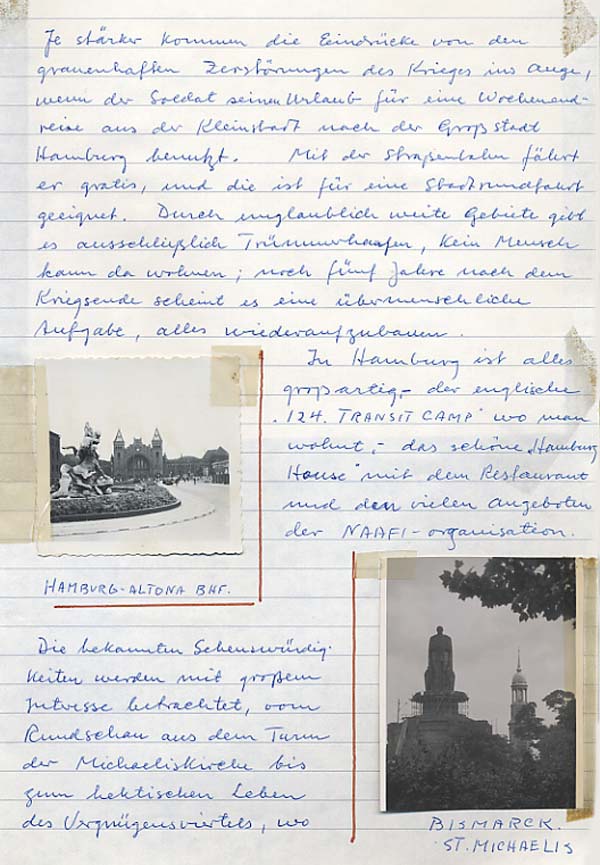 Je stärker kommen die Eindrücke von den
grauenhaften Zerstörungen des Krieges ins Auge,
wenn der Soldat seinen Urlaub für eine Wochenend-
reise aus der Kleinstadt nach der Großstadt
Hamburg benutzt. Mit der Straßenbahn fährt
er gratis, und die ist für eine Stadtrundfahrt
geeignet. Durch unglaublich weite Gebiete gibt
es ausschließlich Trümmerhaufen, kein Mensch
kann da wohnen; noch fünf Jahre nach dem
Kriegsende scheint es eine übermenschliche
Aufgabe, alles wiederaufzubauen.
In Hamburg ist alles
großartig,- der englische
"124. TRANSIT CAMP" wo man
wohnt,- das schöne "Hamburg
House" mit dem Restaurant
und den vielen Angeboten
der NAAFI-organisation.
HAMBURG-ALTONA BHF.
Die bekannten Sehenswürdig-
keiten werden mit großem
Interesse betrachtet, vom
Rundschau aus dem Turm
der Michaeliskirche bis
zum hektischen Leben
des Vergnügensviertels, wo
BISMARCK.
ST. MICHAELIS